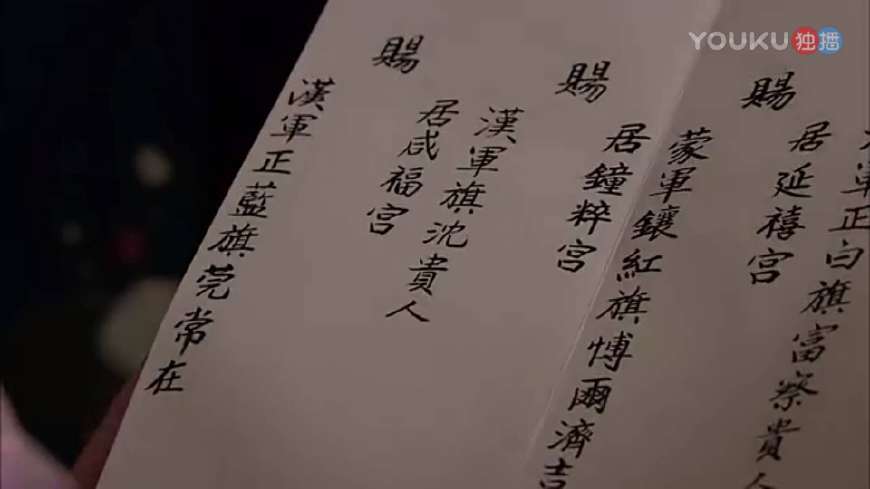 YOUKU 独播
軍正白旗富察貴人
賜
居延禧宮
蒙軍鑲紅旗博爾濟吉
賜
居鐘粹宮
漢軍旗沈貴人
賜
居咸福宮
漢軍正藍旗莞常在